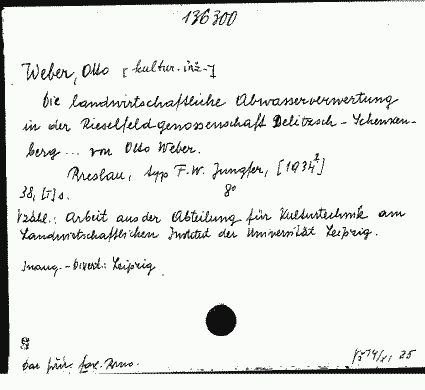 136300
Weber, Otto [kultur.-inż.]
Die landwirtschaftliche Abwasserverwertung
in der Rieselfeldgenossenschaft Delitzsch-Schenken-
berg ... von Otto Weber.
Breslau, typ F. W. Jungfer, [1934]
38, [I] s. 8°
: Arbeit aus der Abteilung für Kulturtechnik am
Landwirtschaftlichen Institut der Universität Leipzig.
Inaug.-Dissert.: Leipzig.